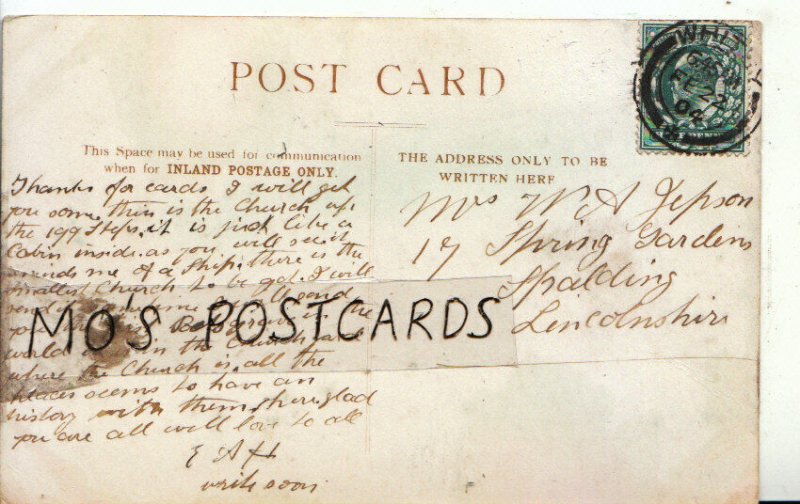 POST CARD
This Space may be used for communication
when for INLAND POSTAGE ONLY.
THE ADDRESS ONLY TO BE
WRITTEN HERE
Thanks for cards I will get
you some, this is the Church up
the 199 Steps, it is just like a
Cabin inside. as you will see it
minds me of a Ship, there is the
smallest Church to be got. I will
send
you
world in the Church
where the Church is, all the
places seems to have an
history with them, glad
you are all well love to all
E A H
write soon
Mrs W A Jepson
17 Spring Gardens
Spalding
Lincolnshire
MO'S POSTCARDS
FE 22
04